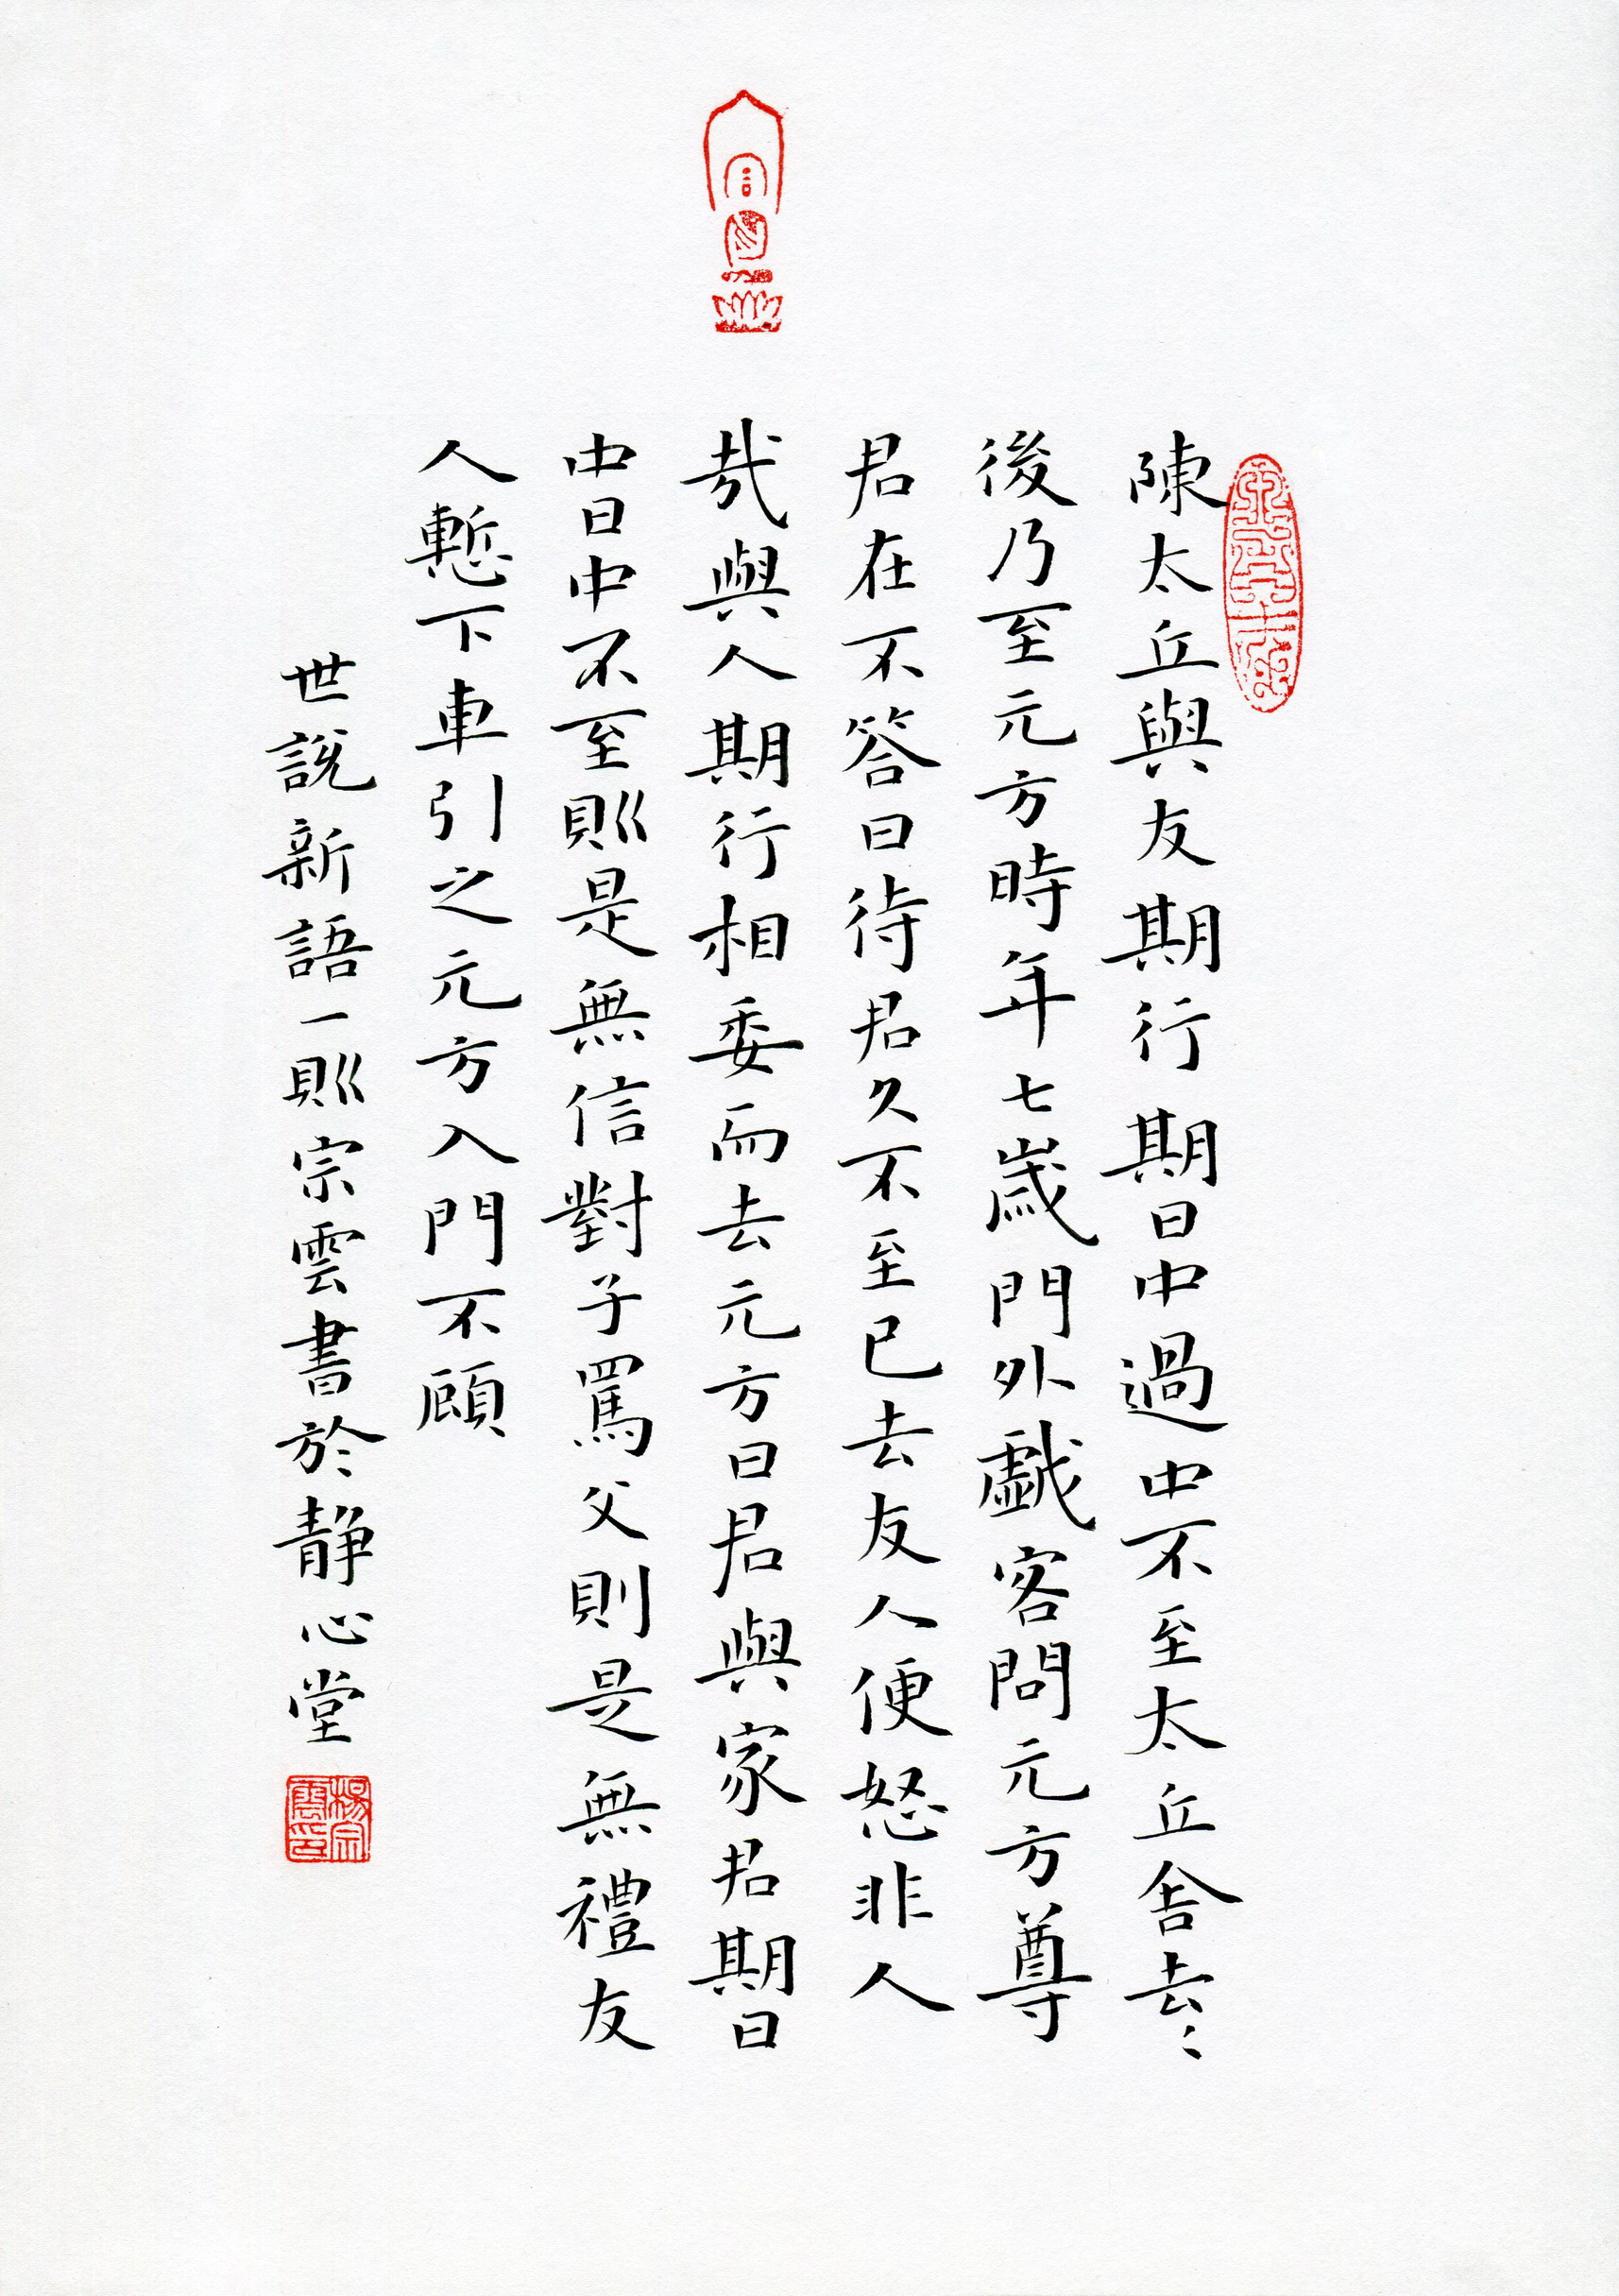 陳太丘與友期行期日中過中不至太丘舍去〻
後乃至元方時年七歲門外戱客問元方尊
君在不答曰待君久不至已去友人便怒非人
哉與人期行相委而去元方曰君與家君期日
中日中不至則是無信對子罵父則是無禮友
人慙下車引之元方入門不顧
世說新語一則宗雲書於靜心堂
楊宗雲印